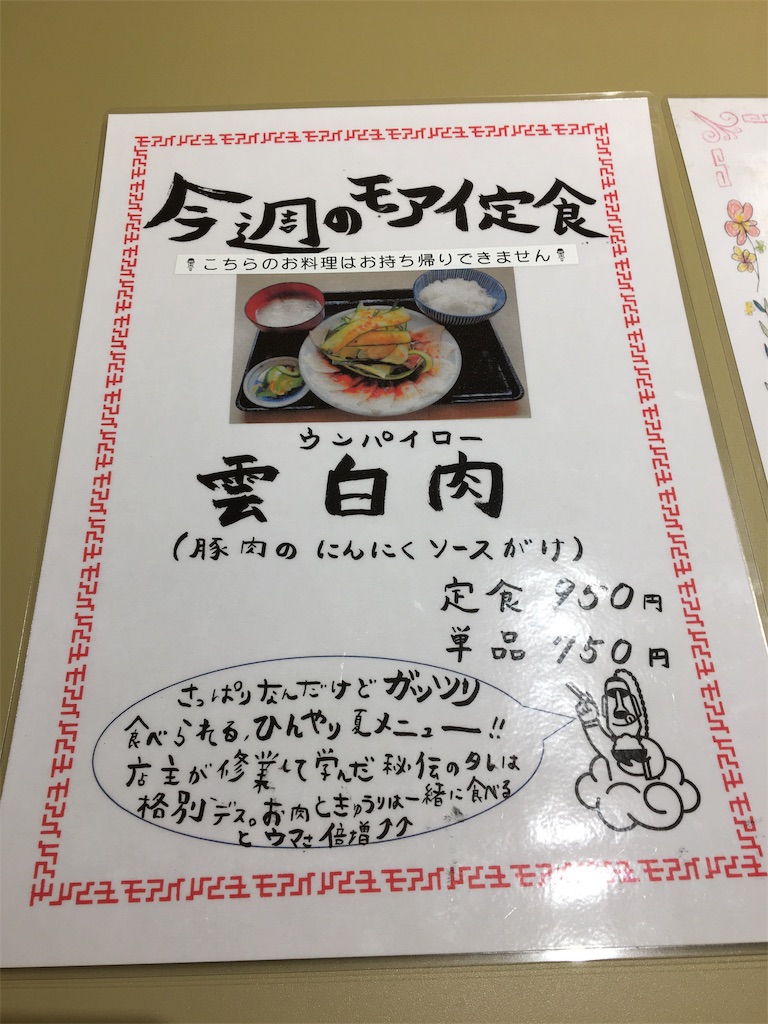 今週のモアイ定食
こちらのお料理はお持ち帰りできません
ウンパイロー
雲白肉
(豚肉の にんにくソースがけ)
定食 950円
単品 750円
さっぱりなんだけど ガッツリ
食べられる、ひんやり夏メニュー!!
店主が修業して学んだ秘伝のタレは
格別デス。お肉ときゅうりは一緒に食べる
とウマさ倍増↑↑